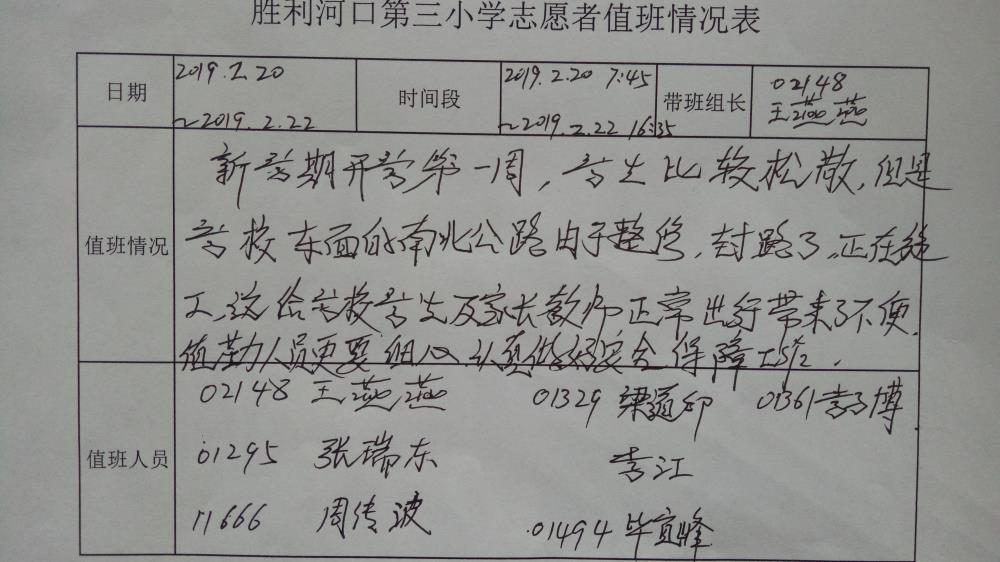 胜利河口第三小学志愿者值班情况表
日期 2019.2.20 ~2019.2.22 时间段 2019.2.20 7:45 ~2019.2.22 16:35 带班组长 02148 王燕燕
新学期开学第一周，学生比较松散，但是
值班情况 学校东面的南北公路由于整修，封路了，正在施
工，这给学校学生及家长教师正常出行带来了不便，
值勤人员更要细心，认真做好安全保障工作。
02148 王燕燕 01329 梁道印 01361 李子博
值班人员 01295 张瑞东 李江
11666 周传波 01494 毕宜峰